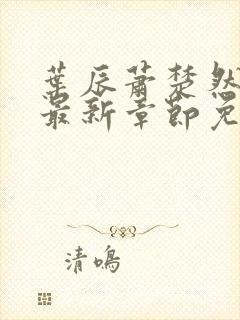 葉辰蕭楚然
最新章節免
清鳴